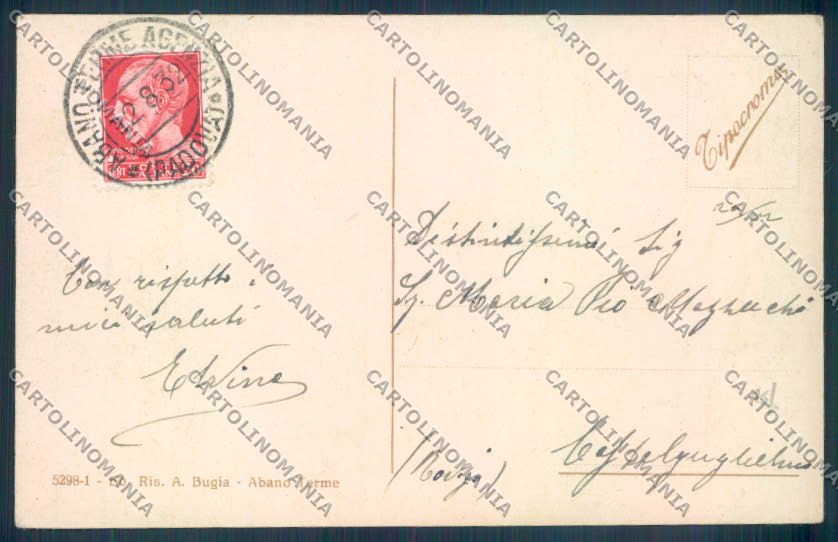 ABANO TERME AGENZIA
(PADOVA)
2.8.32
Tipocroma
Con rispetto i
miei saluti
Elvina
Distintissimi Sig
Sg. Maria Pio
Castelguglielmo
(Rovigo)
5298-1 - Ed. Ris. A. Bugia - Abano Terme
CARTOLINOMANIA